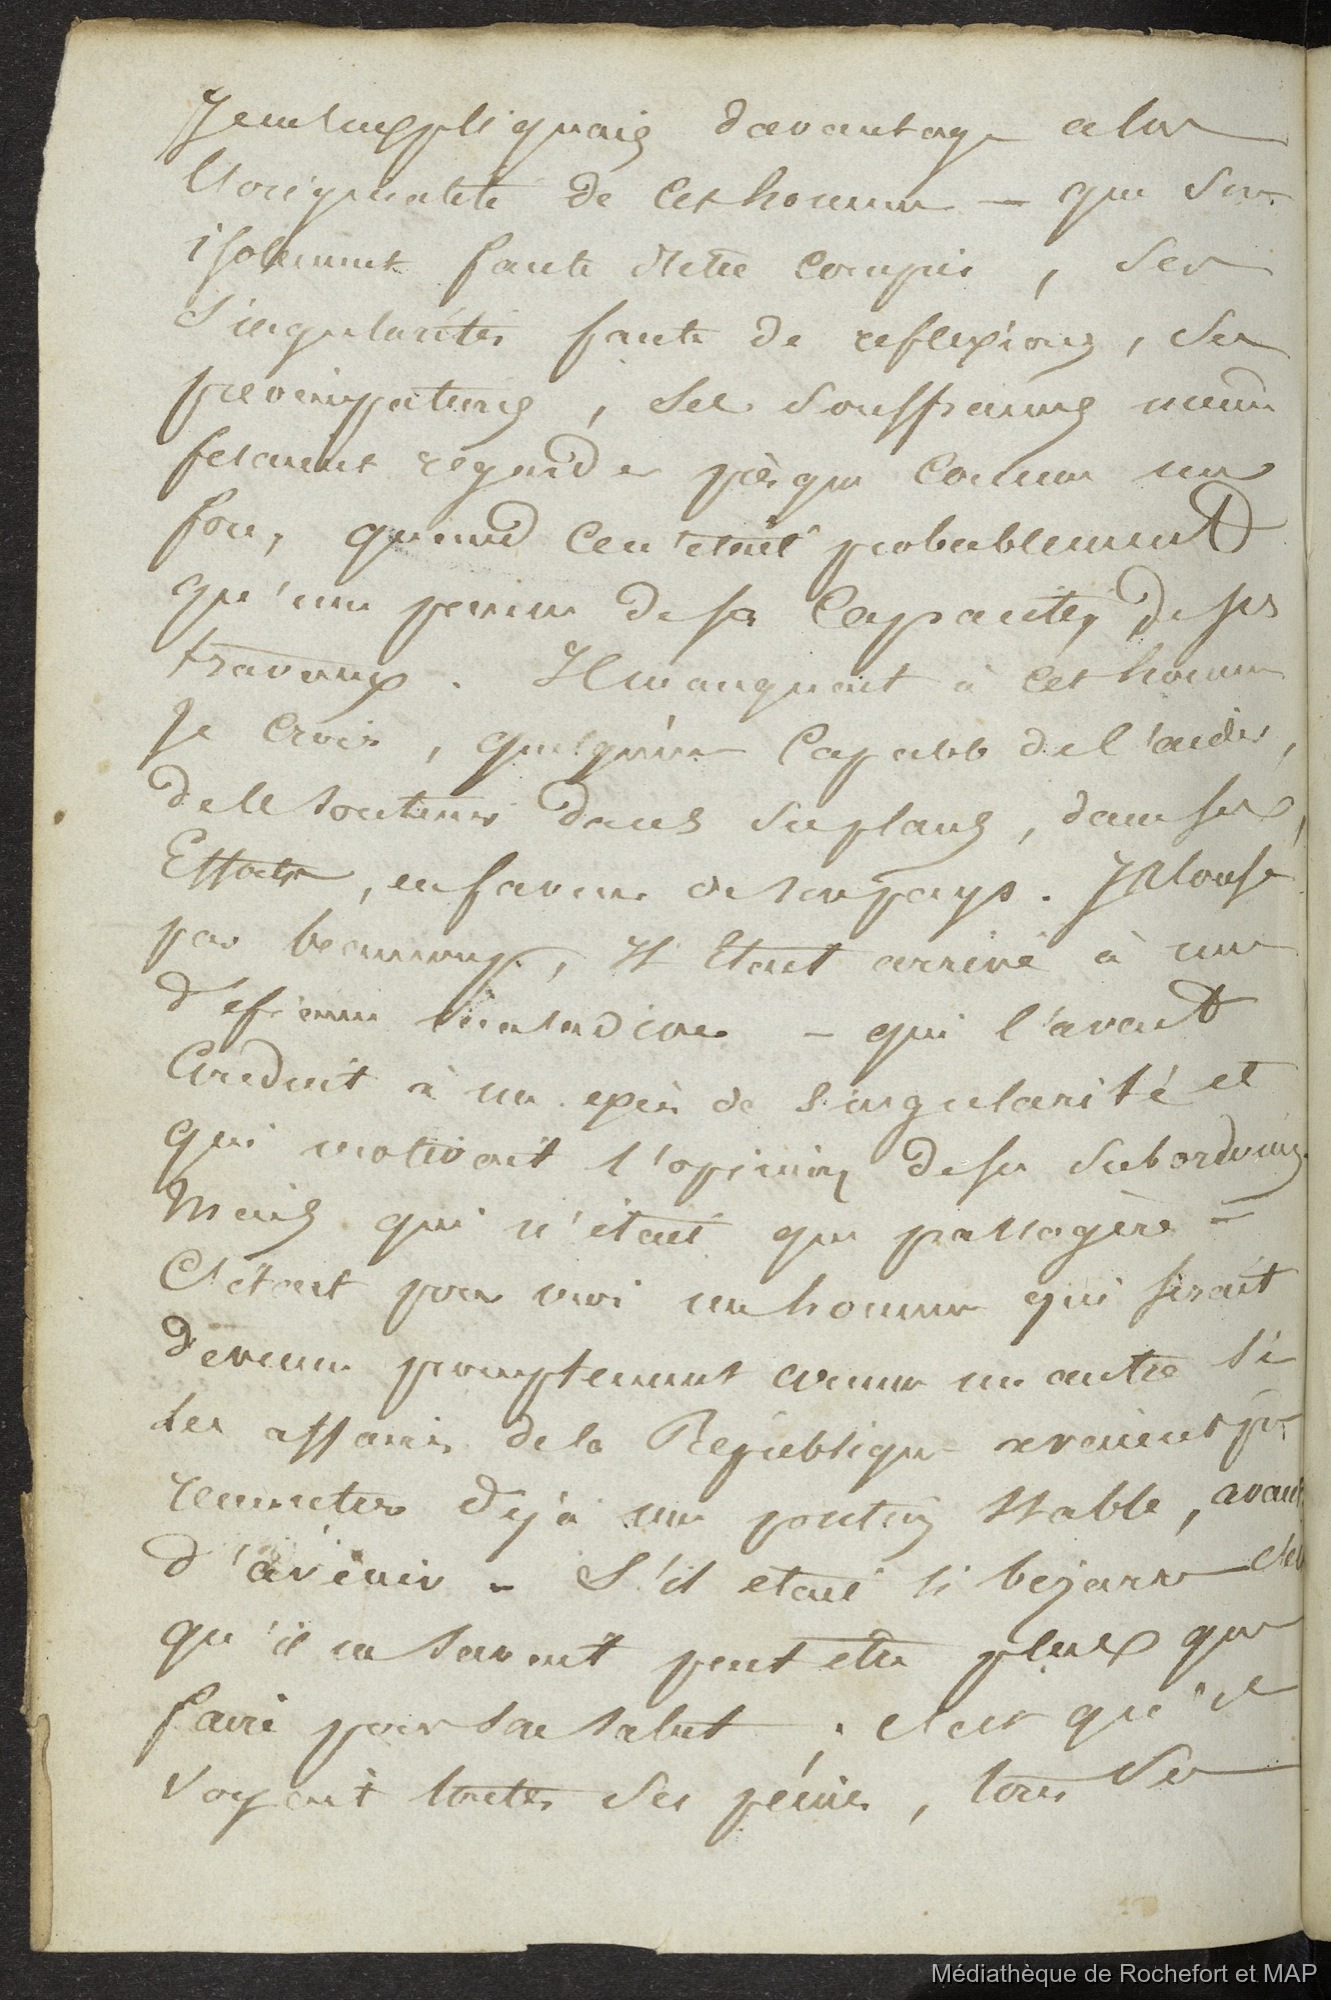 Je m'expliquais davantage alors
l'originalité de cet homme — que son
isolement faute d'être compris, ses
singularités faute de reflexions, ses
préoccupations, ses souffrances même
fesaient regarder presque comme un
fou, quand ce n'etait probablement
qu'une de sa capacité, de ses
travaux. Il manquait à cet homme
je crois, quelqu'un capable de l'aider,
de le soutenir dans ses plans, dans ses
Efforts, en faveur de son pays. Jalousé
par beaucoup, Il Etait arrivé à une
défiance maladive — qui l'avait
Conduit à un de singularité et
qui motivait l'opinion de ses subordonnés
Mais qui n'était que passagère —
C'était pour moi un homme qui serait
devenu promptement comme un autre si
les affaires de la République avaient pu
remettre déjà une position stable, avant
d'avenir — S'il etait si bizarre c'est
qu'il en savait peut etre plus que
faire pour son salut ; c'est qu'il
voyait toutes ses peines, tous ses
Médiathèque de Rochefort et MAP